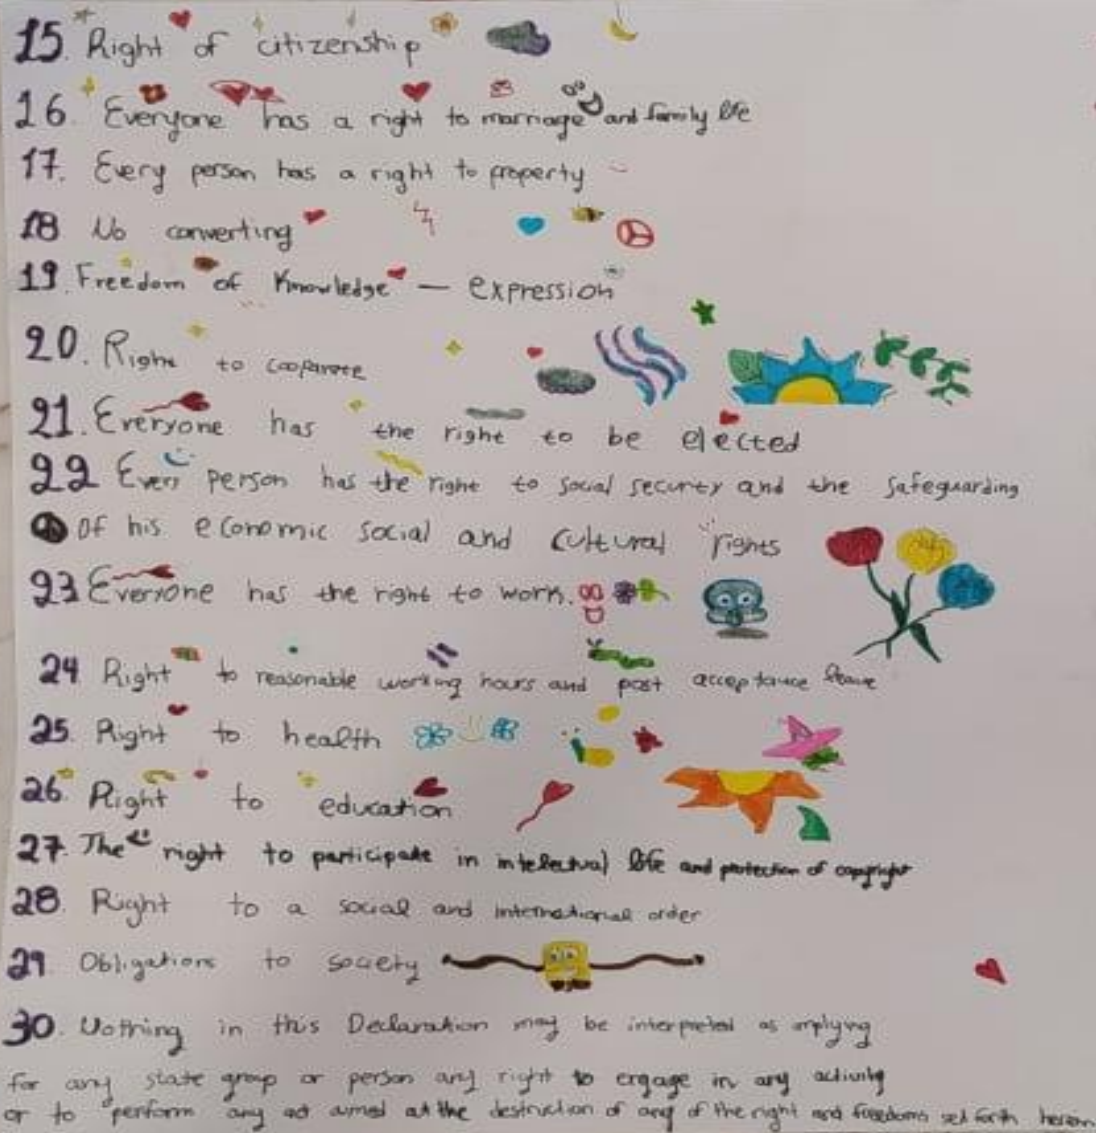 15. Right of citizenship
16. Everyone has a right to marriage and family life
17. Every person has a right to property
18 No converting
19. Freedom of Knowledge — expression
20. Right to cooparete
21. Everyone has the right to be elected
22 Every person has the right to social security and the safeguarding
of his economic social and cultural rights
23 Everyone has the right to work.
24 Right to reasonable working hours and post acceptance leave
25. Right to health
26. Right to education
27. The right to participate in intelectual life and protection of copyright
28. Right to a social and international order
29 Obligations to society
30. Nothing in this Declaration may be interpreted as implying
for any state group or person any right to engage in any activity
or to perform any act aimed at the destruction of any of the right and freedoms set forth herein